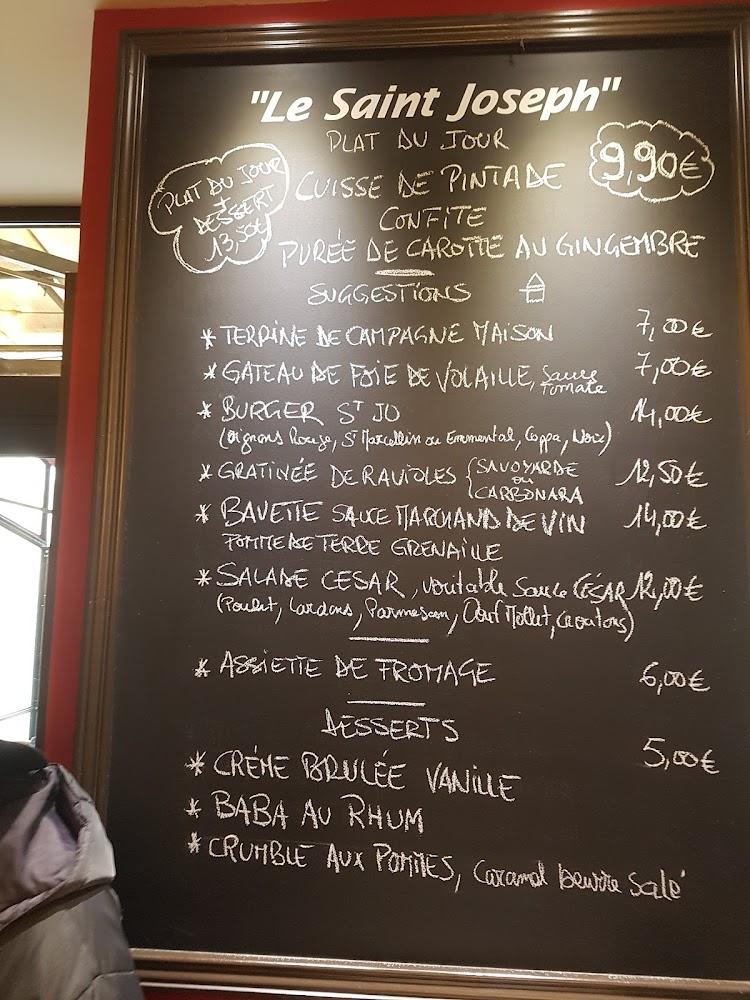 "Le Saint Joseph"
PLAT DU JOUR
9,90€
PLAT DU JOUR
+
DESSERT
13,50€
CUISSE DE PINTADE
CONFITE
PURÉE DE CAROTTE AU GINGEMBRE
SUGGESTIONS
* TERRINE DE CAMPAGNE MAISON 7,00€
* GATEAU DE FOIE DE VOLAILLE, Sauce Tomate 7,00€
* BURGER ST JO 14,00€
(Oignons Rouge, St Marcellin ou Emmental, Coppa, Noix)
* GRATINÉE DE RAVIOLES { SAVOYARDE 12,50€
ou
CARBONARA
* BAVETTE SAUCE MARCHAND DE VIN 14,00€
POMME DE TERRE GRENAILLE
* SALADE CESAR, véritable Sauce CÉSAR 12,00€
(Poulet, Lardons, Parmesan, Oeuf Mollet, Croutons)
* ASSIETTE DE FROMAGE 6,00€
DESSERTS
5,00€
* CRÉME BRULÉE VANILLE
* BABA AU RHUM
* CRUMBLE AUX POMMES, Caramel beurre Salé